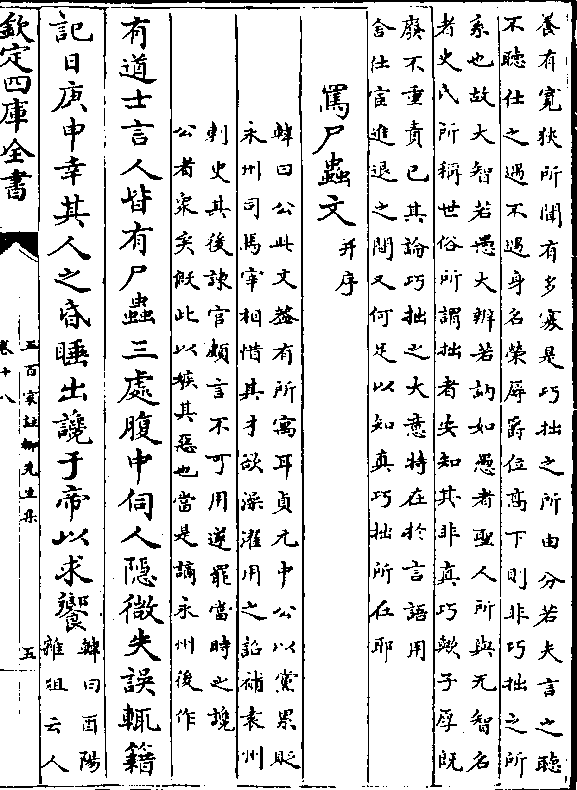 養有寛狹所聞有多寡是巧拙之所由分若夫言之聽
不聽仕之遇不遇身名榮辱爵位高下則非巧拙之所
系也故大智若愚大辨若訥如愚者聖人所與无智名
者史氏所稱世俗所謂拙者安知其非真巧歟子厚旣
廢不重責已其論巧拙之大意特在於言語用
舍仕宦進退之間又何足以知真巧拙所在耶
罵尸蟲文并序
韓曰公此文蓋有所寓耳貞元中公以黨累貶
永州司馬宰相惜其才欲澡濯用之詔補袁州
刺史其後諌官頗言不可用遂罷當時之讒
公者衆矣假此以嫉其惡也當是謫永州後作
有道士言人皆有尸蟲三處腹中伺人隱微失誤輒籍
記日庚申幸其人之昏睡出讒于帝以求饗韓曰酉陽
雜俎云人
欽定四庫全書
五百家註柳先生集
卷十八
五